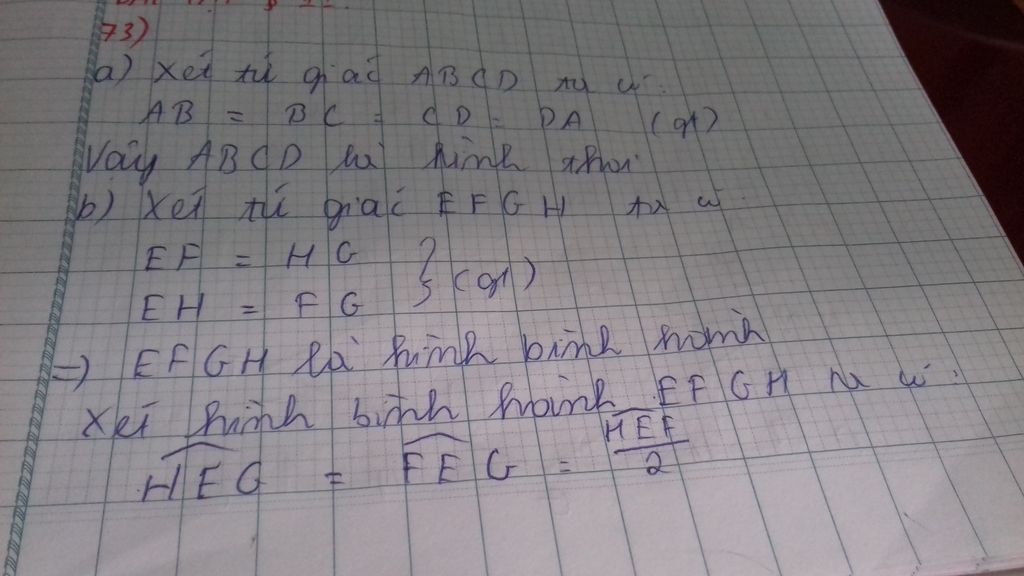 73)
a) Xét tứ giác ABCD ta có:
AB = BC = CD = DA (gt)
Vậy ABCD là hình thoi
b) Xét tứ giác EFGH ta có
EF = HG } (gt)
EH = FG
=) EFGH là hình bình hành
Xét hình bình hành EFGH ta có:
HEG = FEG = HEF / 2